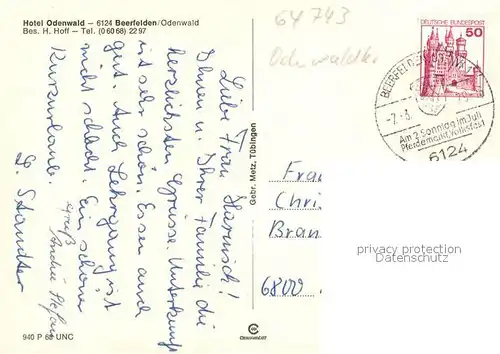 Hotel Odenwald – 6124 Beerfelden/Odenwald
Bes. H. Hoff – Tel. (0 60 68) 22 97
64743
Odenwaldkr
DEUTSCHE BUNDESPOST
50
BEERFELDEN, ODENWALD
-7.-8.
Am 2. Sonntag im Juli
Pferdemarkt, Volksfest
6124
Liebe Frau
Ihnen u. Ihrer Familie die
herzlichsten Grüsse. Unterkunft
ist sehr schön. Essen auch
gut. Auch Lehrgang ist
nicht schlecht. Ein schöner
Kurzurlaub.
Gruß
André Stefan
Gebr. Metz, Tübingen
Frau
Chri
Bran
6800
privacy protection
VERSANDHANDEL
940 P 68 UNC